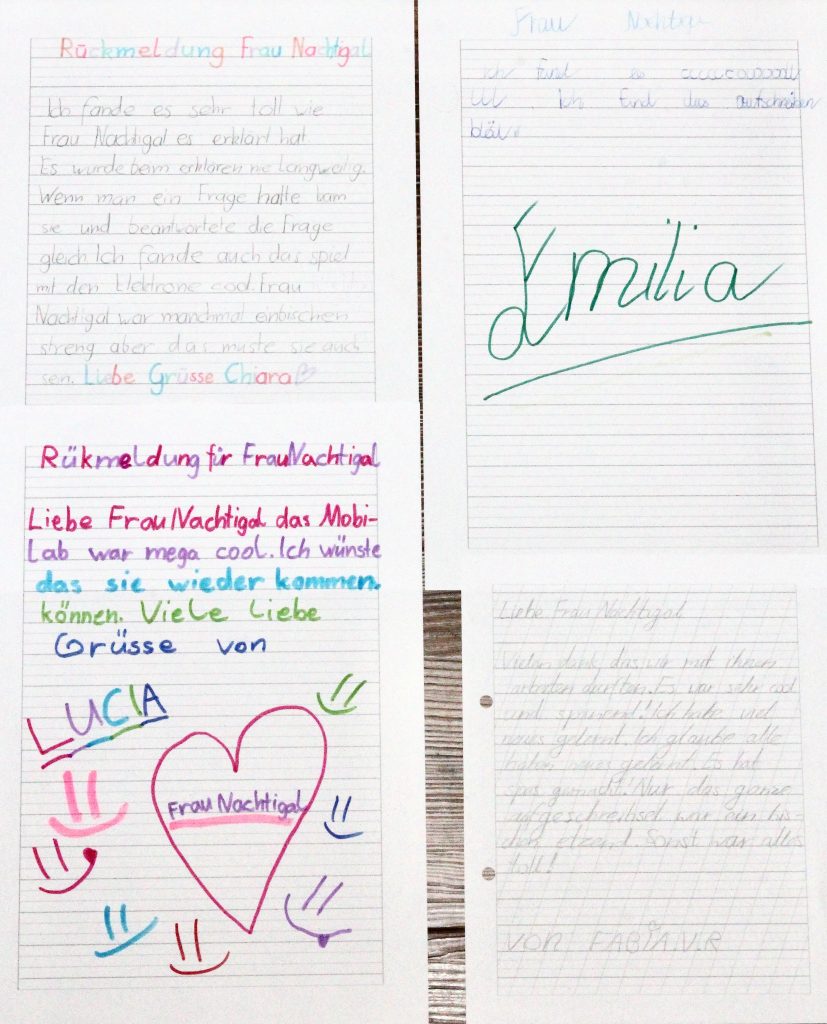 Rückmeldung Frau Nachtigal
Ich fande es sehr toll wie
Frau Nachtigal es erklärt hat.
Es wurde beim erklären nie langweilig.
Wenn man ein Frage hatte kam
sie und beantwortete die Frage
gleich Ich fande auch das spiel
mit den Elektrone cool. Frau
Nachtigal war manchmal einbischen
streng aber das muste sie auch
sein. Liebe Grüsse Chiara
Frau
ich find es
Ich find das aufschreiben
Emilia
Rükmeldung für Frau Nachtigal
Liebe Frau Nachtigal das Mobi-
Lab war mega cool. Ich wünste
das sie wieder kommen.
können. Viele Liebe
Grüsse von
LUCIA
Frau Nachtigal
Liebe Frau Nachtigal
Vielen dank, das wir mit ihnen
arbeiten durften. Es war sehr cool
und spanend! Ich habe viel
neues gelernt. Ich glaube alle
haben neues gelernt. Es hat
spas gemacht! Nur das ganze
war ein bis
chen etzend. Sonst war alles
toll!
VON FABIAN.R